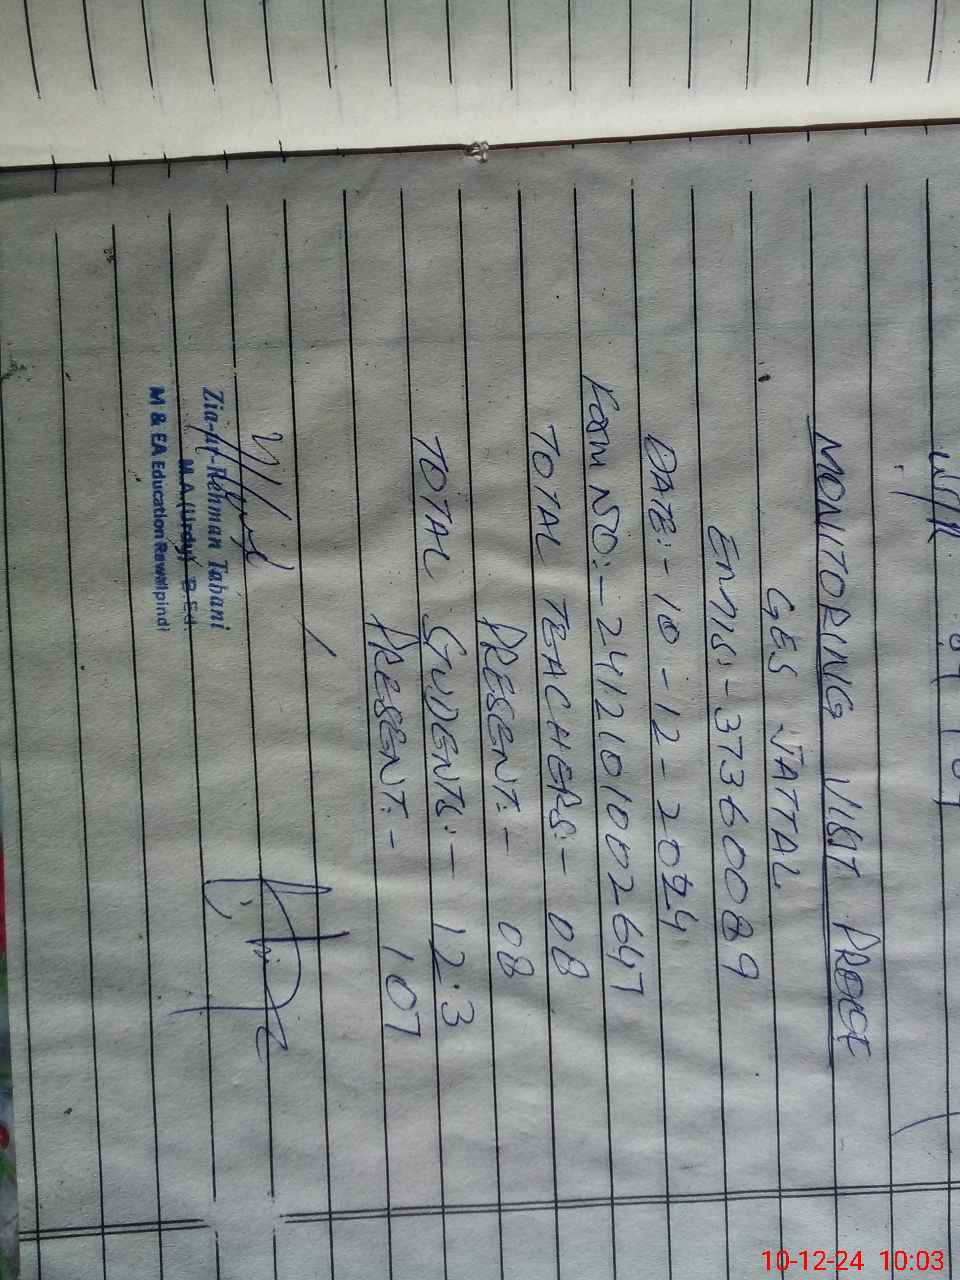 MONITORING VISIT PROOF
GES JATTAL
Emis:- 37360089
DATE:- 10-12-2024
FORM NO:- 2412101002647
TOTAL TEACHERS:- 08
PRESENT:- 08
TOTAL STUDENTS:- 123
PRESENT:- 107
Zia-ur-Rehman Tabani
M.A.(Urdu) B.Ed.
M & EA Education Rawalpindi
10-12-24 10:03